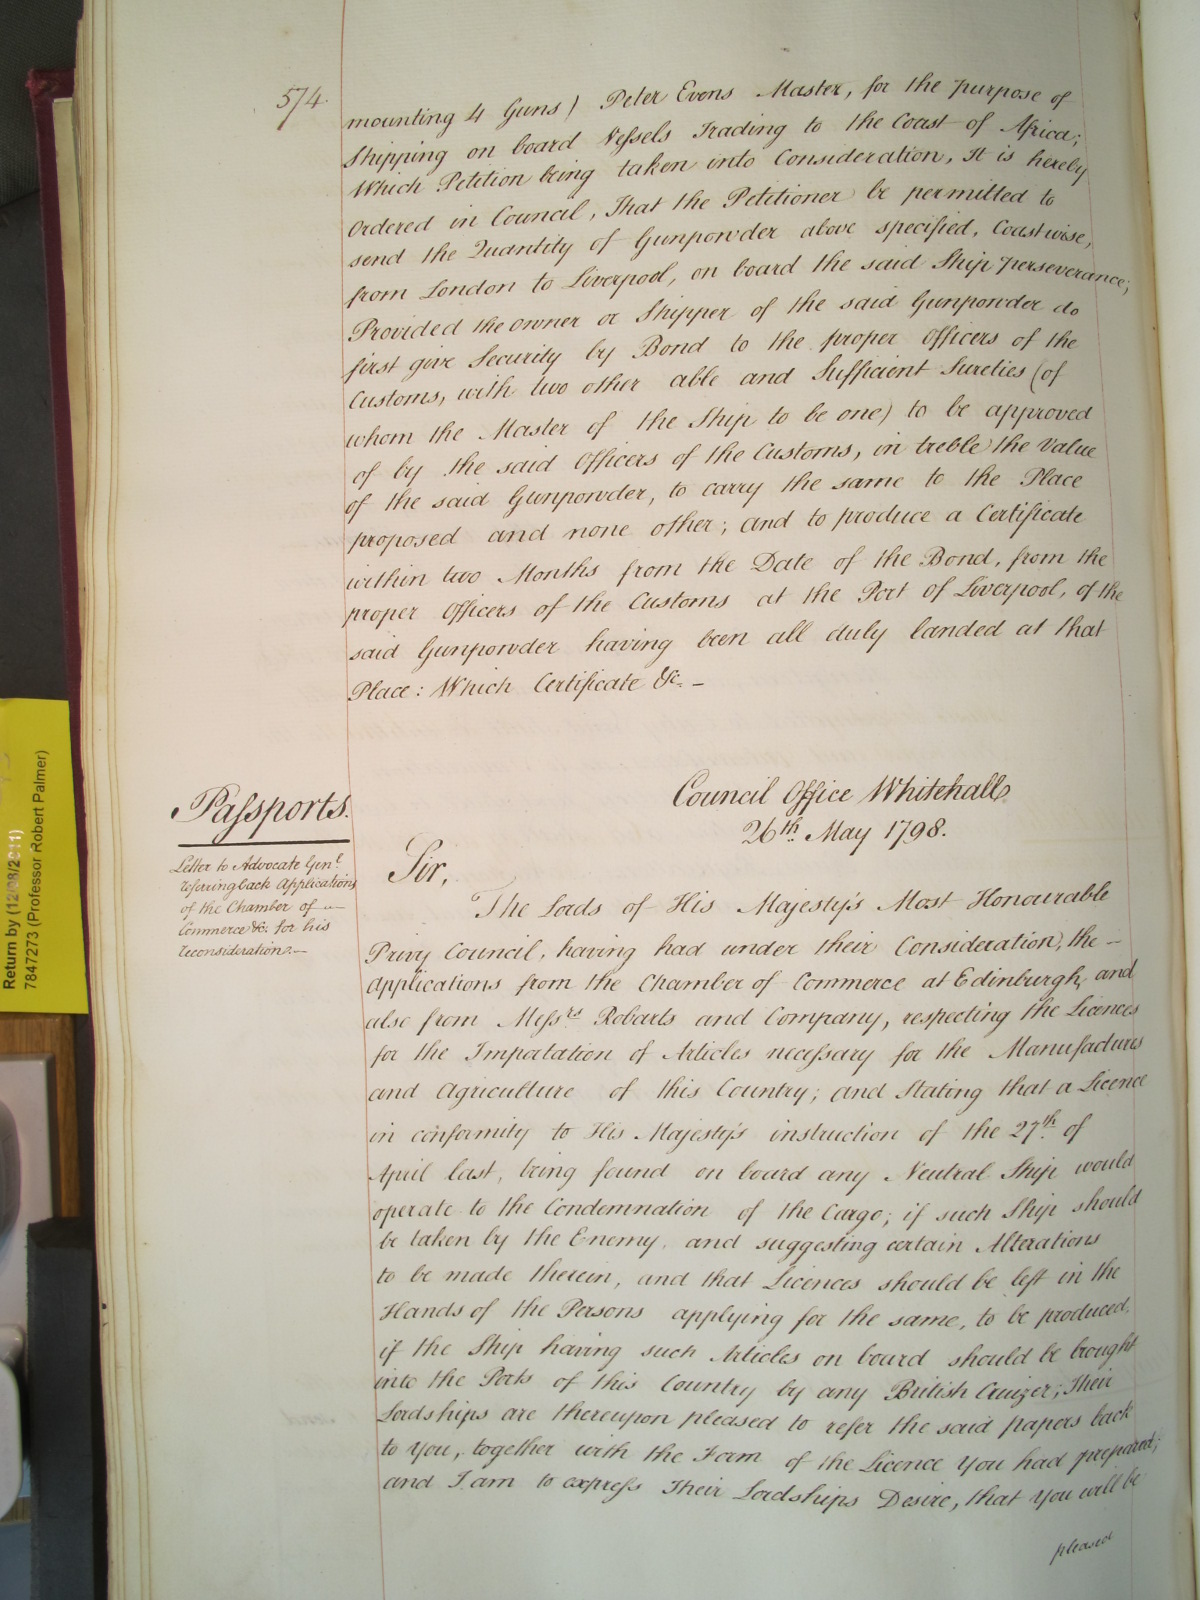 574
mounting 4 Guns) Peter Evans Master, for the purpose of
Shipping on board Vessels Trading to the Coast of Africa;
Which Petition being taken into Consideration, It is hereby
Ordered in Council, That the Petitioner be permitted to
send the Quantity of Gunpowder above specified, Coastwise,
from London to Liverpool, on board the said Ship perseverance;
Provided the Owner or Shipper of the said Gunpowder do
first give Security by Bond to the proper Officers of the
Customs, with two other able and Sufficient Sureties (of
whom the Master of the Ship to be one) to be approved
of by the said Officers of the Customs, in treble the Value
of the said Gunpowder, to carry the same to the Place
proposed and none other; and to produce a Certificate
within two Months from the Date of the Bond, from the
proper Officers of the Customs at the Port of Liverpool, of the
said Gunpowder having been all duly landed at that
Place: Which Certificate &c. –
Passports.
Letter to Advocate Genl.
referring back Applications
of the Chamber of —
Commerce &c. for his
reconsideration.—
Council Office Whitehall
26th. May 1798.
Sir,
The Lords of His Majesty's Most Honourable
Privy Council, having had under their Consideration, the –
Applications from the Chamber of Commerce at Edinburgh, and
also from Messrs Robarts and Company, respecting the Licences
for the Importation of Articles necessary for the Manufactures
and Agriculture of this Country; and Stating that a Licence
in conformity to His Majesty's instruction of the 27th. of
April last, being found on board any Neutral Ship would
operate to the Condemnation of the Cargo; if such Ship should
be taken by the Enemy, and suggesting certain Alterations
to be made therein, and that Licences should be left in the
Hands of the Persons applying for the same, to be produced,
if the Ship having such Articles on board should be brought
into the Ports of this Country by any British Cruizer; Their
Lordships are thereupon pleased to refer the said papers back
to you, together with the Form of the Licence you had prepared;
and I am to express Their Lordships Desire, that you will be
pleased
Return by (12/08/2011)
7847273 (Professor Robert Palmer)